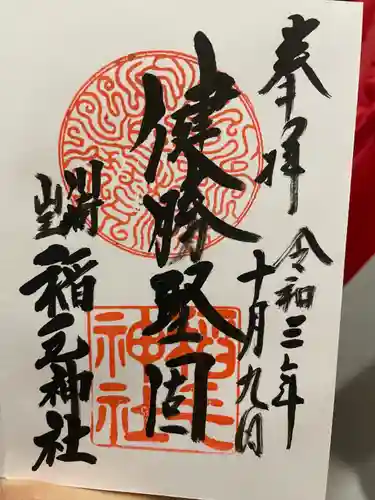 奉拝
令和三年
十月九日
健勝堅固
稲足神社
神社